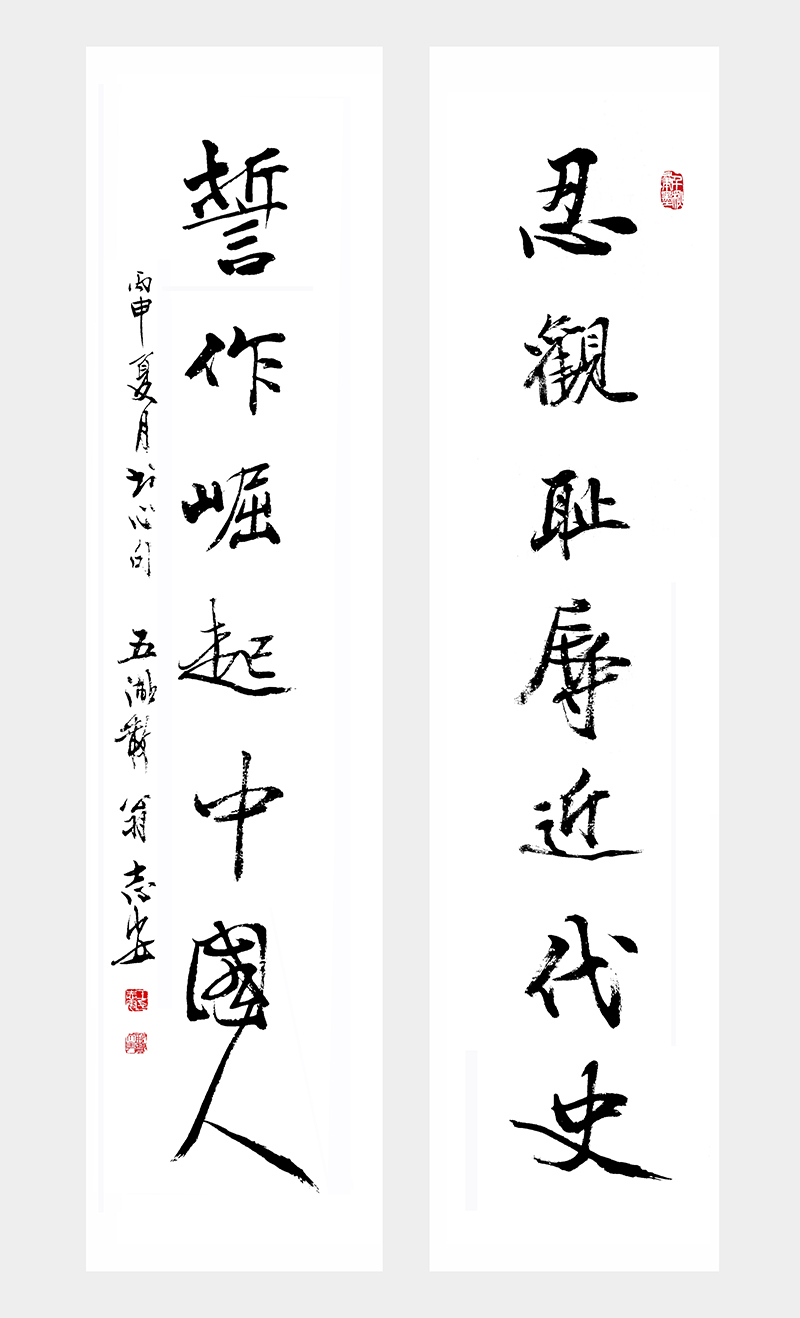 忍觀恥辱近代史
誓作崛起中國人
丙申夏月 心句 五湖散翁志安